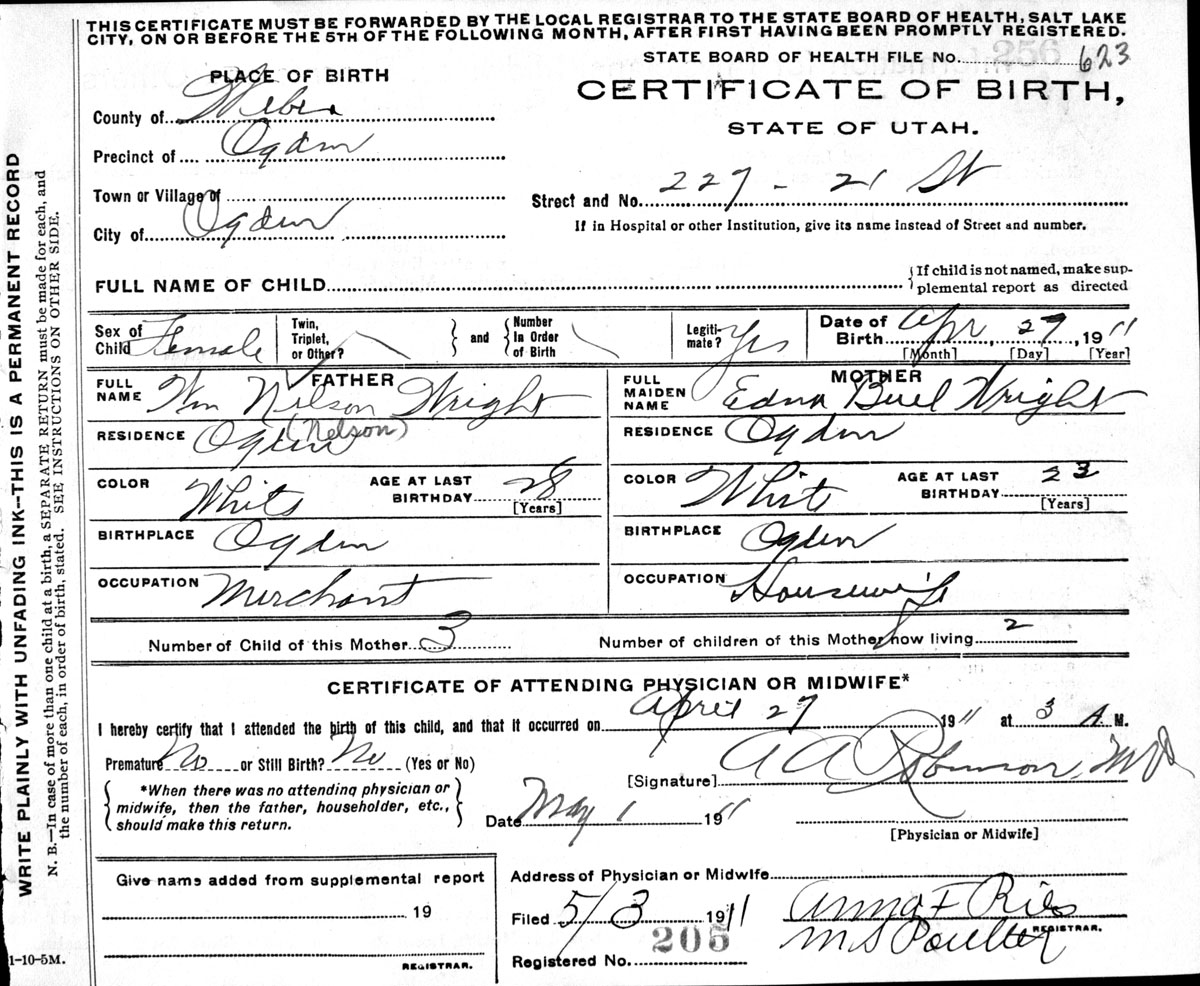 THIS CERTIFICATE MUST BE FORWARDED BY THE LOCAL REGISTRAR TO THE STATE BOARD OF HEALTH, SALT LAKE
CITY, ON OR BEFORE THE 5TH OF THE FOLLOWING MONTH, AFTER FIRST HAVING BEEN PROMPTLY REGISTERED.
STATE BOARD OF HEALTH FILE No. 256 623
PLACE OF BIRTH
CERTIFICATE OF BIRTH,
STATE OF UTAH.
County of Weber
Precinct of Ogden
Town or Village of
City of Ogden
Street and No. 227 - 21 St
If in Hospital or other Institution, give its name instead of Street and number.
FULL NAME OF CHILD
If child is not named, make sup-
plemental report as directed
Sex of Child Female
Twin, Triplet, or Other?
and
Number In Order of Birth
Legiti-mate? Yes
Date of Birth Apr, 27, 1911
[Month] [Day] [Year]
FATHER
FULL NAME Wm Nilson Wright
(Nelson)
RESIDENCE Ogden
COLOR White
AGE AT LAST BIRTHDAY 28
[Years]
BIRTHPLACE Ogden
OCCUPATION Merchant
MOTHER
FULL MAIDEN NAME Edna Buel Wright
RESIDENCE Ogden
COLOR White
AGE AT LAST BIRTHDAY 23
[Years]
BIRTHPLACE Ogden
OCCUPATION Housewife
Number of Child of this Mother 3
Number of children of this Mother now living 2
CERTIFICATE OF ATTENDING PHYSICIAN OR MIDWIFE*
I hereby certify that I attended the birth of this child, and that it occurred on April 27 1911 at 3 A M.
Premature No or Still Birth? No (Yes or No)
[Signature] A A Robinson, MD
*When there was no attending physician or
midwife, then the father, householder, etc.,
should make this return.
Date May 1 1911
[Physician or Midwife]
Give name added from supplemental report
19
REGISTRAR.
Address of Physician or Midwife
Filed 5/3 1911
Anna F Ries
M S Poulter
REGISTRAR.
Registered No. 205
1-10-5M.
WRITE PLAINLY WITH UNFADING INK--THIS IS A PERMANENT RECORD
N. B.--In case of more than one child at a birth, a SEPARATE RETURN must be made for each, and
the number of each, in order of birth, stated. SEE INSTRUCTIONS ON OTHER SIDE.